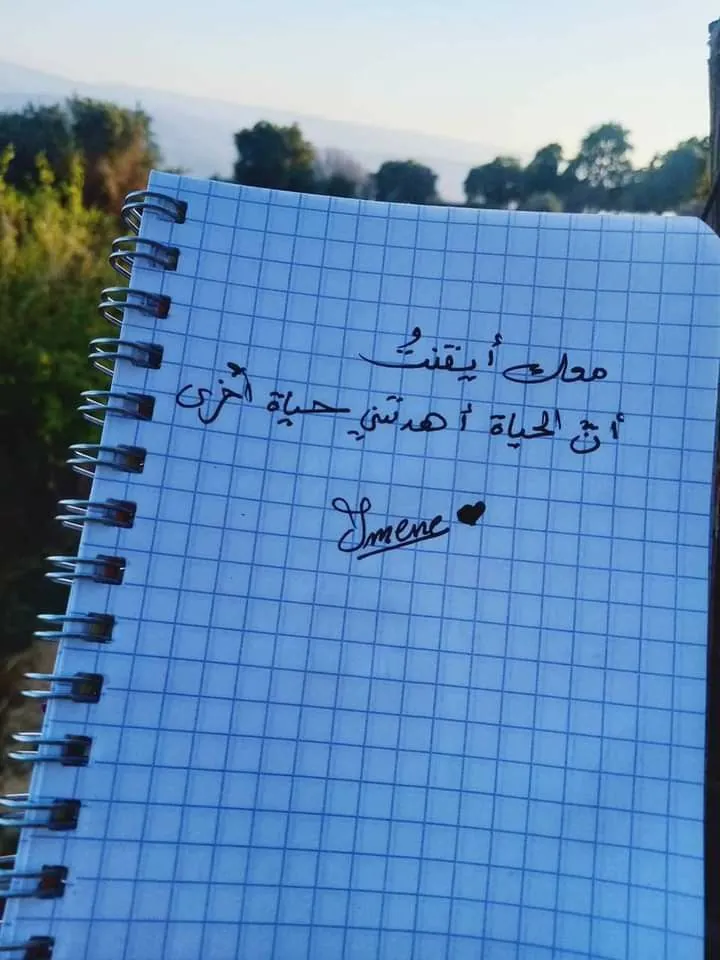 معك أيقنتُ
أنّ الحياة أهدتني حياة أخرى
Imene ♥